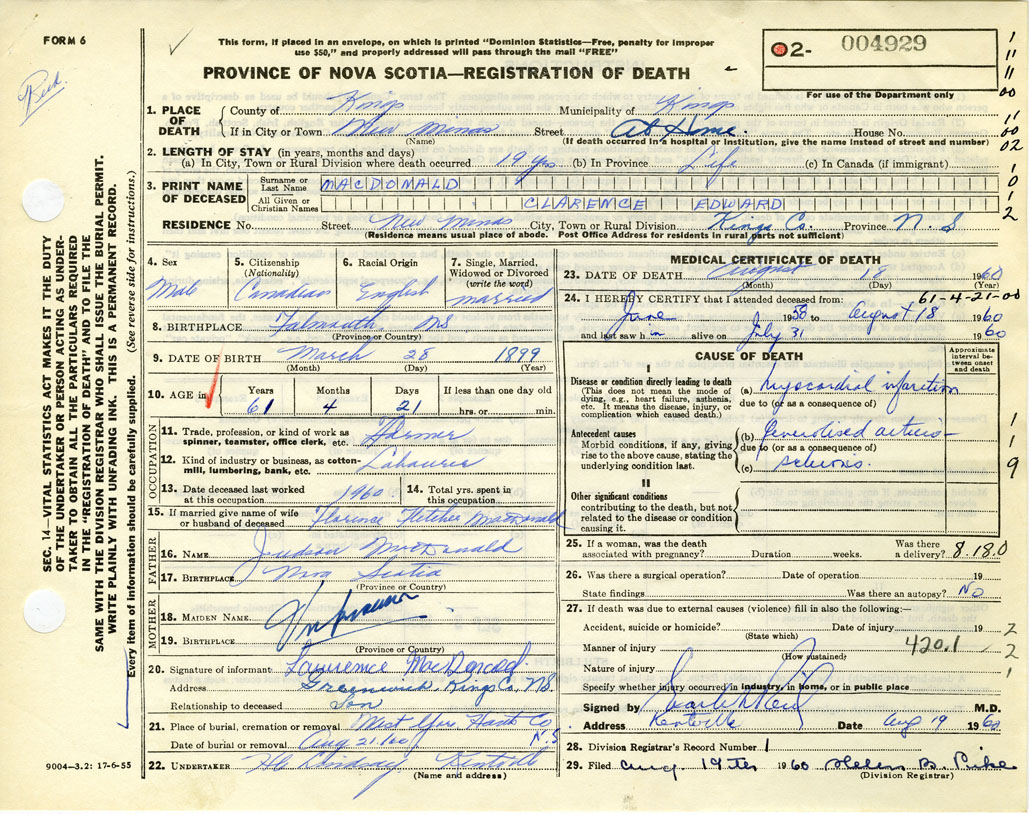 FORM 6
This form, if placed in an envelope, on which is printed "Dominion Statistics—Free, penalty for improper
use $50," and properly addressed will pass through the mail "FREE"
PROVINCE OF NOVA SCOTIA—REGISTRATION OF DEATH
02- 004929
For use of the Department only
SEC. 14—VITAL STATISTICS ACT MAKES IT THE DUTY
OF THE UNDERTAKER OR PERSON ACTING AS UNDER-
TAKER TO OBTAIN ALL THE PARTICULARS REQUIRED
IN THE "REGISTRATION OF DEATH" AND TO FILE THE
SAME WITH THE DIVISION REGISTRAR WHO SHALL ISSUE THE BURIAL PERMIT.
WRITE PLAINLY WITH UNFADING INK. THIS IS A PERMANENT RECORD.
Every item of information should be carefully supplied. (See reverse side for instructions.)
1. PLACE OF DEATH County of Kings Municipality of Kings
If in City or Town New Minas Street At Home. House No.
(Name) (If death occurred in a hospital or institution, give the name instead of street and number)
2. LENGTH OF STAY (in years, months and days)
(a) In City, Town or Rural Division where death occurred 19 yrs (b) In Province Life (c) In Canada (if immigrant)
3. PRINT NAME OF DECEASED Surname or Last Name MACDONALD
All Given or Christian Names CLARENCE EDWARD
RESIDENCE No. Street New Minas City, Town or Rural Division Kings Co. Province N.S
(Residence means usual place of abode. Post Office Address for residents in rural parts not sufficient)
4. Sex Male
5. Citizenship (Nationality) Canadian
6. Racial Origin English
7. Single, Married, Widowed or Divorced (write the word) married
8. BIRTHPLACE Falmouth NS
(Province or Country)
9. DATE OF BIRTH March 28 1899
(Month) (Day) (Year)
10. AGE in Years Months Days If less than one day old
61 4 21 hrs. or min.
OCCUPATION
11. Trade, profession, or kind of work as spinner, teamster, office clerk, etc. Farmer
12. Kind of industry or business, as cotton-mill, lumbering, bank, etc.
13. Date deceased last worked at this occupation 1960 14. Total yrs. spent in this occupation
15. If married give name of wife or husband of deceased Florence Fletcher MacDonald
FATHER
16. NAME Judson MacDonald
17. BIRTHPLACE Nova Scotia
(Province or Country)
MOTHER
18. MAIDEN NAME Unknown
19. BIRTHPLACE
(Province or Country)
20. Signature of informant Lawrence MacDonald
Address Greenwich Kings Co. NS.
Relationship to deceased Son
21. Place of burial, cremation or removal Hants Co N.S
Date of burial or removal Aug 21/60
22. UNDERTAKER Lindsay Kentville
(Name and address)
9004—3.2: 17-6-55
MEDICAL CERTIFICATE OF DEATH
23. DATE OF DEATH August 18 1960
(Month) (Day) (Year)
61-4-21-00
24. I HEREBY CERTIFY that I attended deceased from:
June 1958 to August 18 1960
and last saw him alive on July 31 1960
CAUSE OF DEATH
Approximate interval between onset and death
I
Disease or condition directly leading to death
(This does not mean the mode of dying, e.g., heart failure, asthenia, etc. It means the disease, injury, or complication which caused death.)
(a) Myocardial infarction
due to (or as a consequence of)
Antecedent causes
Morbid conditions, if any, giving rise to the above cause, stating the underlying condition last.
(b) Generalised arterio-
due to (or as a consequence of)
(c) sclerosis.
II
Other significant conditions
contributing to the death, but not related to the disease or condition causing it.
25. If a woman, was the death associated with pregnancy? Duration weeks. Was there a delivery? 8.18.0
26. Was there a surgical operation? Date of operation 19
State findings Was there an autopsy? No
27. If death was due to external causes (violence) fill in also the following:—
Accident, suicide or homicide? Date of injury 19
(State which)
Manner of injury 420.1
(How sustained)
Nature of injury
Specify whether injury occurred in industry, in home, or in public place
Signed by M.D.
Address Kentville Date Aug 19 1960
28. Division Registrar's Record Number 1
29. Filed Aug. 19th 1960 Helen B. Pike
(Division Registrar)